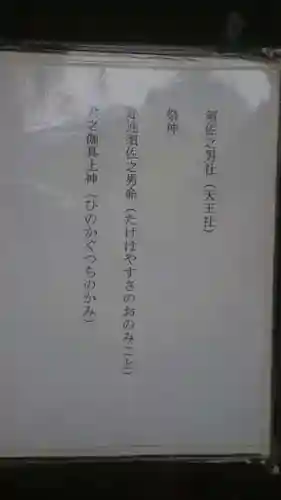 須佐之男社（天王社）
祭神
建速須佐之男命（たけはやすさのおのみこと）
火之伽具土神（ひのかぐつちのかみ）